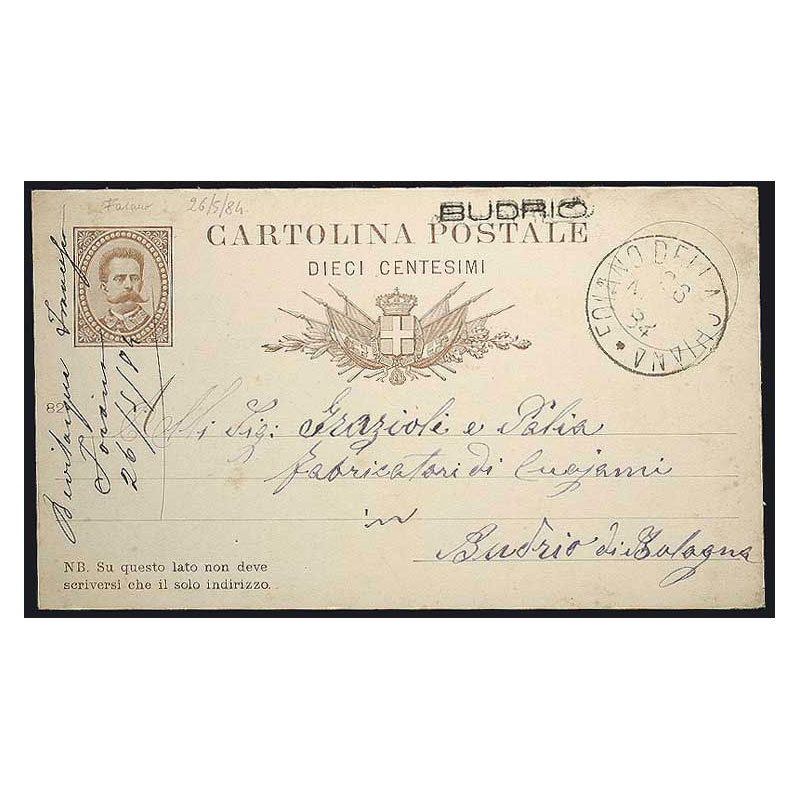 26/5/84
BUDRIO
CARTOLINA POSTALE
DIECI CENTESIMI
FOIANO DELLA CHIANA
26
84
82
Bevilacqua
Foiano
26/5/84
Alli Sig: Grazioli e Palia
Fabricatori di Cuojami
in
Budrio di Bologna
NB. Su questo lato non deve
scriversi che il solo indirizzo.